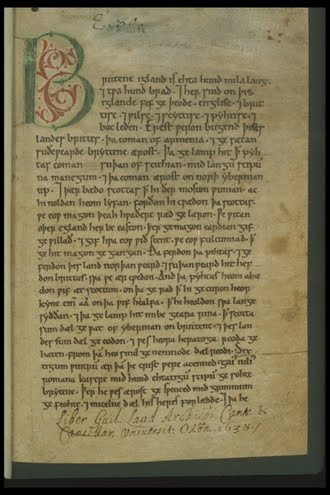 Brittene igland is ehta hund mila lang.
⁊ tƿa hund brad. ⁊ her sind on þis
iglande fif geþeode. englisc. ⁊ brit
tisc. ⁊ ƿilsc. ⁊ scyttisc. ⁊ pyhtisc. ⁊
boc leden. Erest ƿeron bugend þises
landes brittes. þa coman of armenia. ⁊ gesætan
suðeƿearde bryttene ærost. Þa gelamp hit ꝥ pyh
tas coman suþan of scithian. mid langum scipu
na manegum. ⁊ þa coman ærost on norþ ybernian
up. ⁊ þær bædo scottas ꝥ hi ðer moston ƿunian. ac
hi noldan heom lyfan. forðan hi cƿædon þa scottas.
ƿe eoƿ magon þeah hƿaðere ræd gelæron. Ƿe ƿitan
oþer egland her be easton. þer ge magon eardian gif
ge ƿillað. ⁊ gif hƿa eoƿ ƿið stent. ƿe eoƿ fultumiað. ꝥ
ge hit magon gegangan. Ða ferdon þa pihtas. ⁊ ge
ferdon þis land norþan ƿeard. ⁊ suþan ƿeard hit hef
don brittas. sƿa ƿe ær cƿedon. And þa pyhtas heom abæ
don ƿif æt scottum. on þa gerad ꝥ hi gecuron heora
kyne cinn aa on þa ƿif healfa. ꝥ hi heoldon sƿa lange
syððan. ⁊ þa gelamp hit imbe geara rina. ꝥ scotta
sum dæl geƿat of ybernian on brittene. ⁊ þes lan
des sum dæl geeodon. ⁊ ƿes heora heratoga. reoda ge
haten. from þam heo sind genemnode dælreodi. Six
tigum ƿintrum ær þam þe crist ƿere acenned. gaius iulius
romana kasere mid hund ehtatigum scipum gesohte
brytene. Þer he ƿes ærost gesƿenced mid grimmum
gefeohte. ⁊ micelne dæl his heres forlædde. ⁊ þa he
Liber Guil. Laud Archiepi Cant. &
Cancellar. Universit. Oxon. 1638.